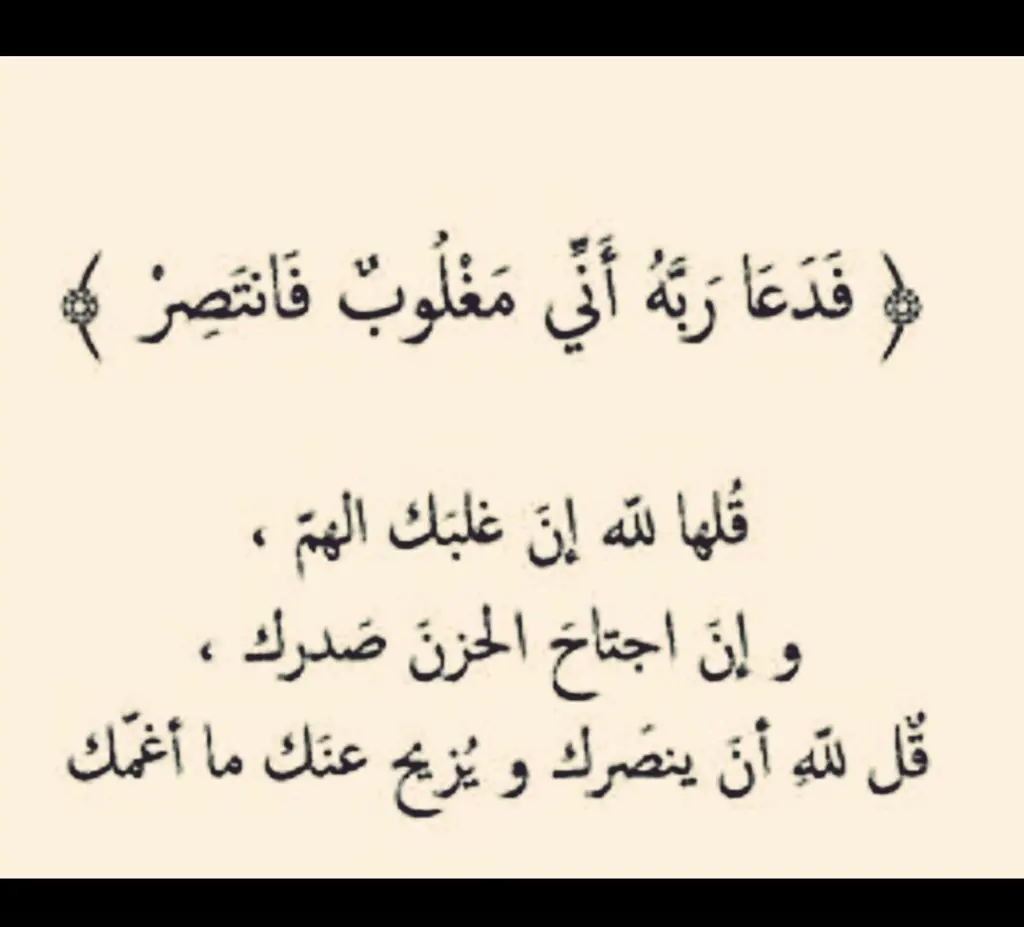 ﴿ فَدَعَا رَبَّهُ أَنِّي مَغْلُوبٌ فَانتَصِرْ ﴾
قُلها للّه إنَ غلبَك الهمّ ،
و إنَ اجتاحَ الحزنَ صَدرك ،
قُل للّهِ أنَ ينصَرك و يُزيح عنَك ما أغمّك